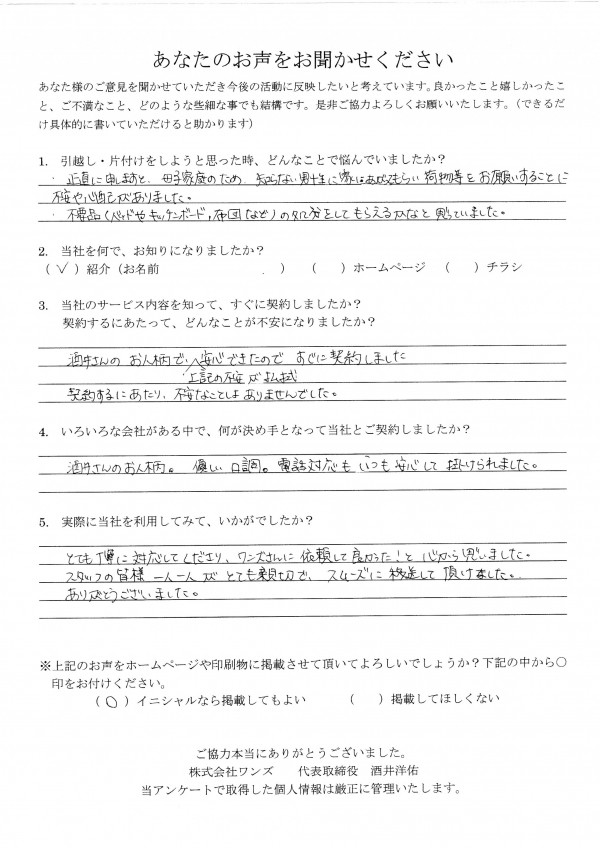 あなたのお声をお聞かせください
あなた様のご意見を聞かせていただき今後の活動に反映したいと考えています。良かったこと嬉しかったこ
と、ご不満なこと、どのような些細な事でも結構です。是非ご協力よろしくお願いいたします。（できるだ
け具体的に書いていただけると助かります）
1. 引越し・片付けをしようと思った時、どんなことで悩んでいましたか？
・正直に申しますと、母子家庭のため、知らない男性に家にあがってもらい荷物等をお願いすることに
不安や心配がありました。
・不要品（ベッドやキッチンボード，布団など）の処分をしてもらえるかなと思っていました。
2. 当社を何で、お知りになりましたか？
（✓）紹介（お名前　　　　　　　）（　）ホームページ（　）チラシ
3. 当社のサービス内容を知って、すぐに契約しましたか？
契約するにあたって、どんなことが不安になりましたか？
酒井さんのお人柄で、安心できたので すぐに契約しました
上記の不安が払拭
契約するにあたり、不安なことはありませんでした。
4. いろいろな会社がある中で、何が決め手となって当社とご契約しましたか？
酒井さんのお人柄。優しい口調。電話対応もいつも安心して掛けられました。
5. 実際に当社を利用してみて、いかがでしたか？
とても丁寧に対応してくださり、ワンズさんに依頼して良かった！と心から思いました。
スタッフの皆様 一人一人がとても親切で、スムーズに移送して頂けました。
ありがとうございました。
※上記のお声をホームページや印刷物に掲載させて頂いてよろしいでしょうか？下記の中から○
印をお付けください。
（○）イニシャルなら掲載してもよい　（　）掲載してほしくない
ご協力本当にありがとうございました。
株式会社ワンズ　代表取締役　酒井洋佑
当アンケートで取得した個人情報は厳正に管理いたします。